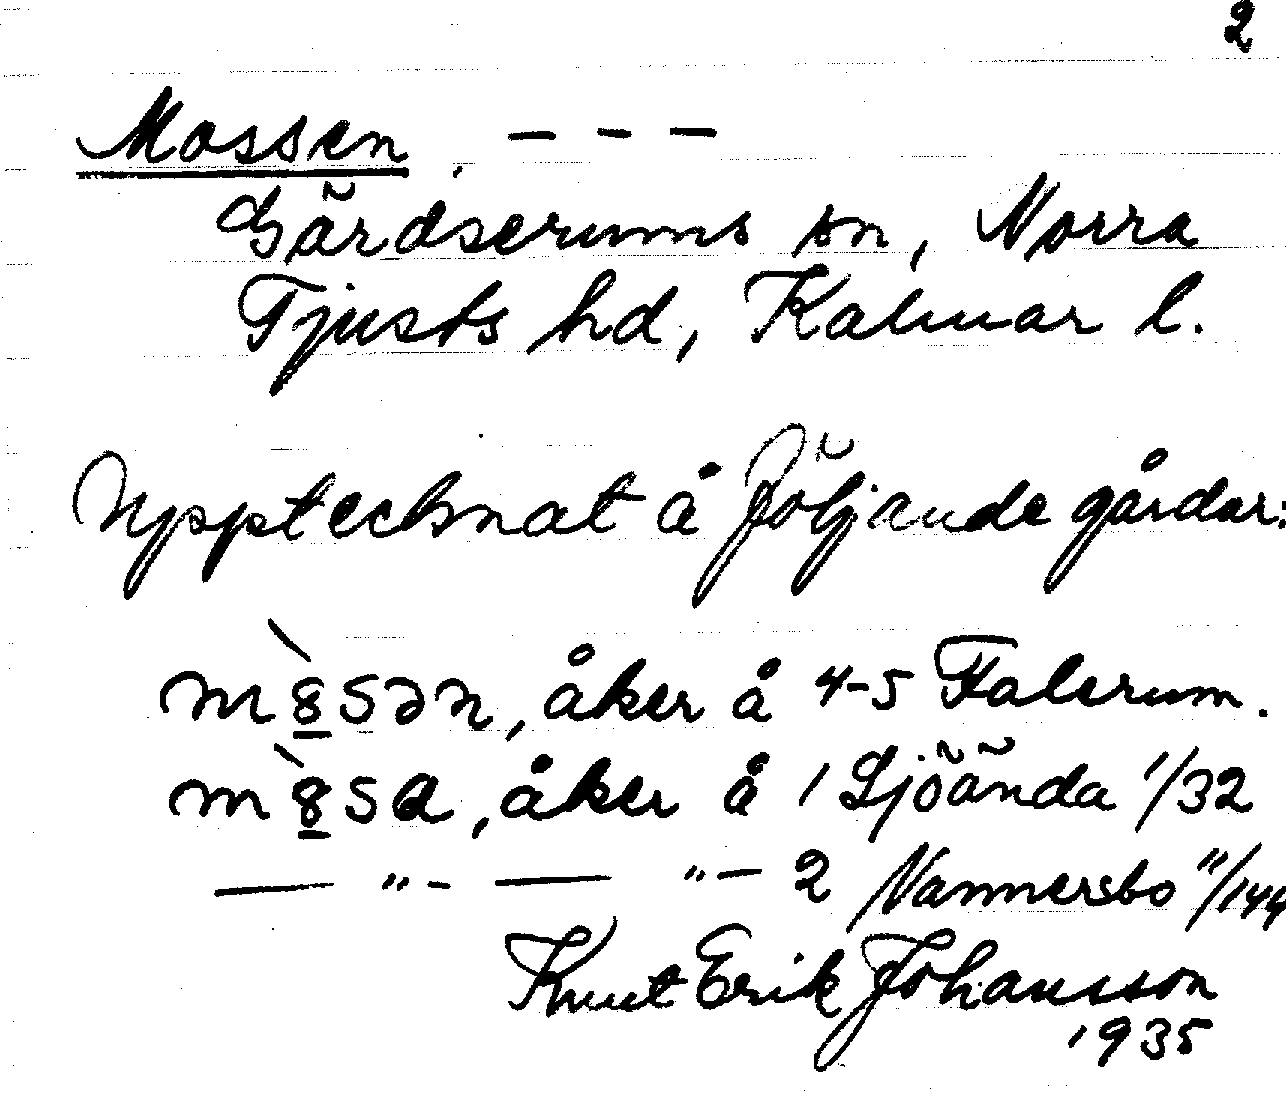 2
Mossen. – – –
Gärdserums sn, Norra
Tjusts hd, Kalmar l.
Upptecknat å följande gårdar:
m8̲̀sən, åker å 4-5 Falerum.
m8̲̀sa, åker å 1 Sjöända 1/32
— " - — " — 2 Vammersbo 11/144
Knut Erik Johansson
1935